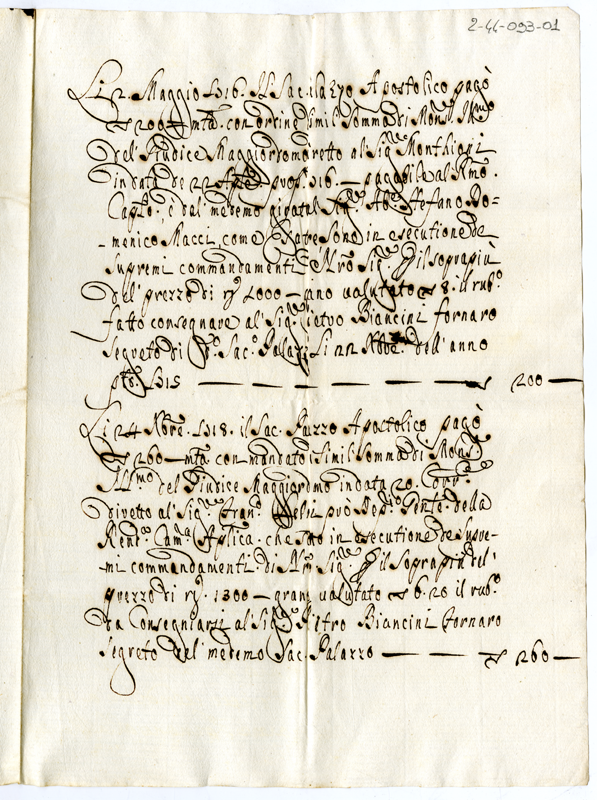 2-44-093-01
Li 2. Maggio 1716. Il Sac. Palazzo Apostolico pagò
200 mta. con ordine simil somma di Mons. Illmo
del Giudice Maggiordomo diretto al Sig.
in data de 22 pagabile al Rmo.
Capto. e dal medemo girata al Sig. Abe. Stefano Do=
-menico Macci, come disse sono in esecutione de
supremi commandamenti di Nro Sig. per il soprapiù
del prezzo di rg. 2000 - grano valutato 8. il rub.
fatto consegnare al Sig. Pietro Biancini fornaro
segreto di do. Sac. Palazo. Li 22 Xbre. dell'anno
pto. 1715 — 200 —
Li 24 Xbre. 1718. il Sac. Palazzo Apostolico pagò
260 - mta. con mandato di simil somma di Mons.
Illmo del Giudice Maggiordmo in data 20. Corr.
diretto al Sig. Gente. della
Rend. Cama. Aplica. che sono in esecutione de supre-
mi commandamenti di Nro. Sig. per il soprapiù del
prezzo di rg. 1300 - grano valutato 6.20 il rub.
da consegniarsi al Sig. Pietro Biancini fornaro
segreto del medemo Sac. Palazzo — 260 —